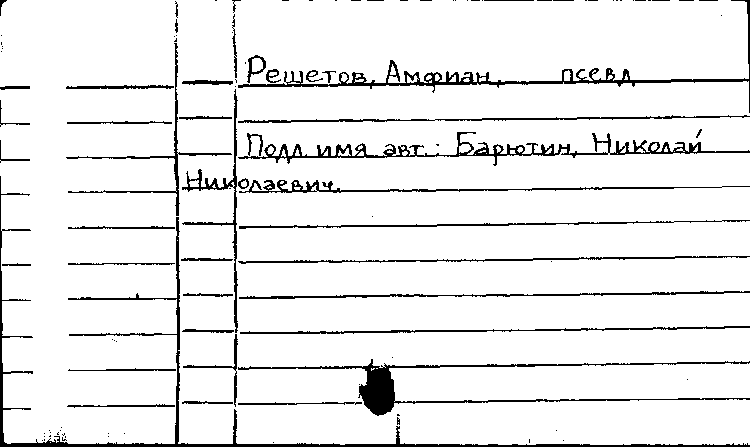 Решетов, Амфиан, псевд.
Подл. имя авт.: Барютин, Николай
Николаевич.